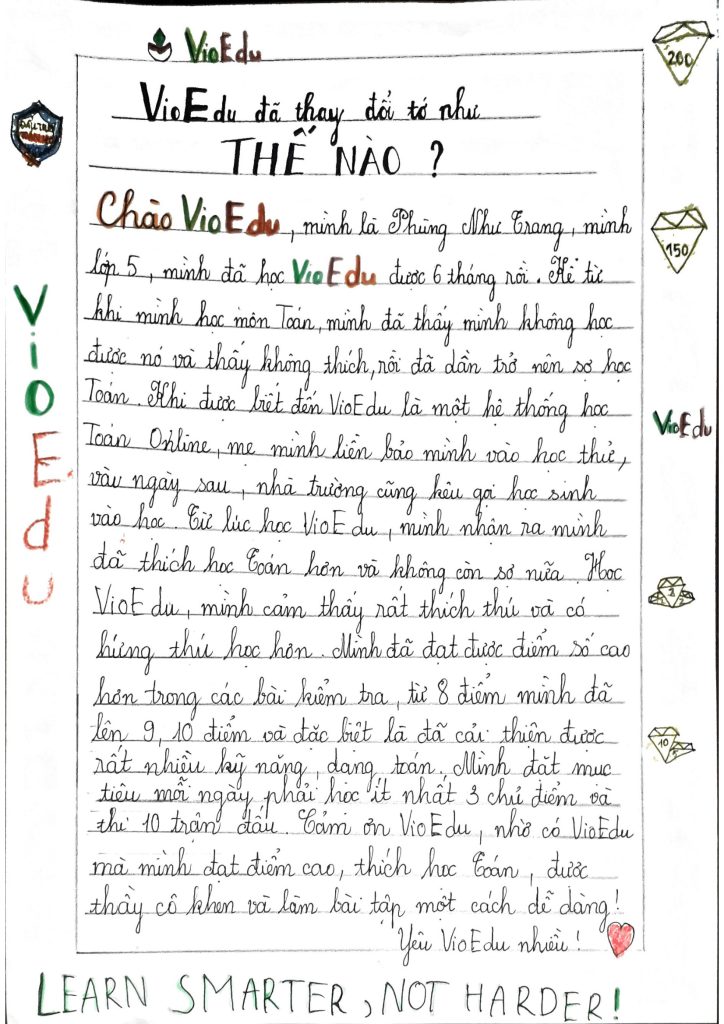 VioEdu
VioEdu đã thay đổi tớ như
THẾ NÀO ?
Chào VioEdu, mình là Phùng Như Trang, mình
lớp 5, mình đã học VioEdu được 6 tháng rồi. Kể từ
khi mình học môn Toán, mình đã thấy mình không học
được nó và thấy không thích, rồi đã dần trở nên sợ học
Toán. Khi được biết đến VioEdu là một hệ thống học
Toán Online, mẹ mình liền bảo mình vào học thử,
vài ngày sau, nhà trường cũng kêu gọi học sinh
vào học. Từ lúc học VioEdu, mình nhận ra mình
đã thích học Toán hơn và không còn sợ nữa. Học
VioEdu, mình cảm thấy rất thích thú và có
hứng thú học hơn. Mình đã đạt được điểm số cao
hơn trong các bài kiểm tra, từ 8 điểm mình đã
lên 9, 10 điểm và đặc biệt là đã cải thiện được
rất nhiều kỹ năng, dạng toán. Mình đặt mục
tiêu mỗi ngày phải học ít nhất 3 chủ điểm và
thi 10 trận đấu. Cảm ơn VioEdu, nhờ có VioEdu
mà mình đạt điểm cao, thích học Toán, được
thầy cô khen và làm bài tập một cách dễ dàng!
Yêu VioEdu nhiều!
LEARN SMARTER, NOT HARDER!
VioEdu
200
150
VioEdu
10